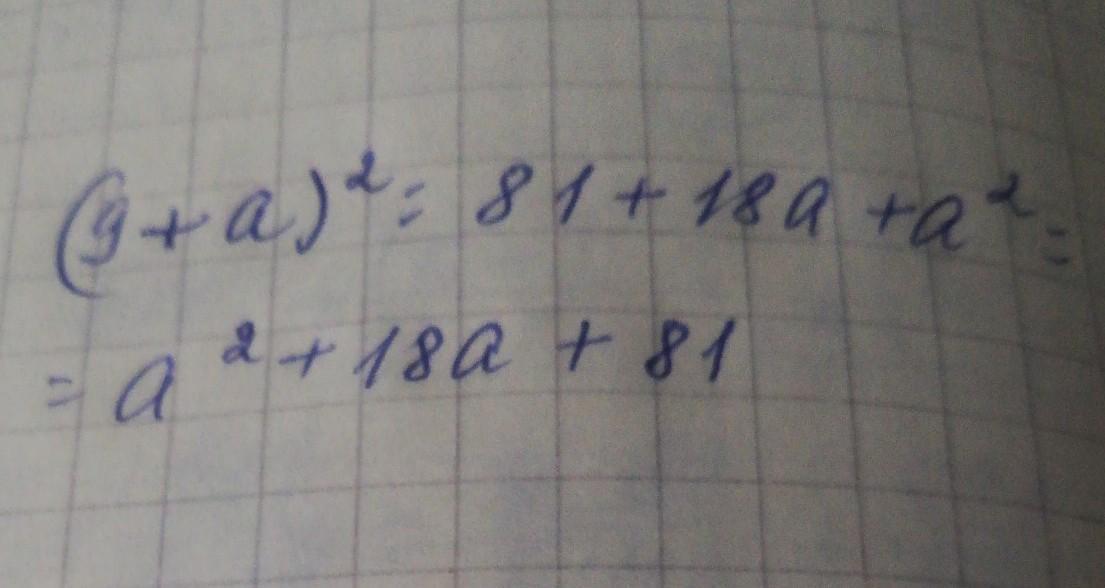 (9+a)²= 81+18a+a²=
=a²+18a+81